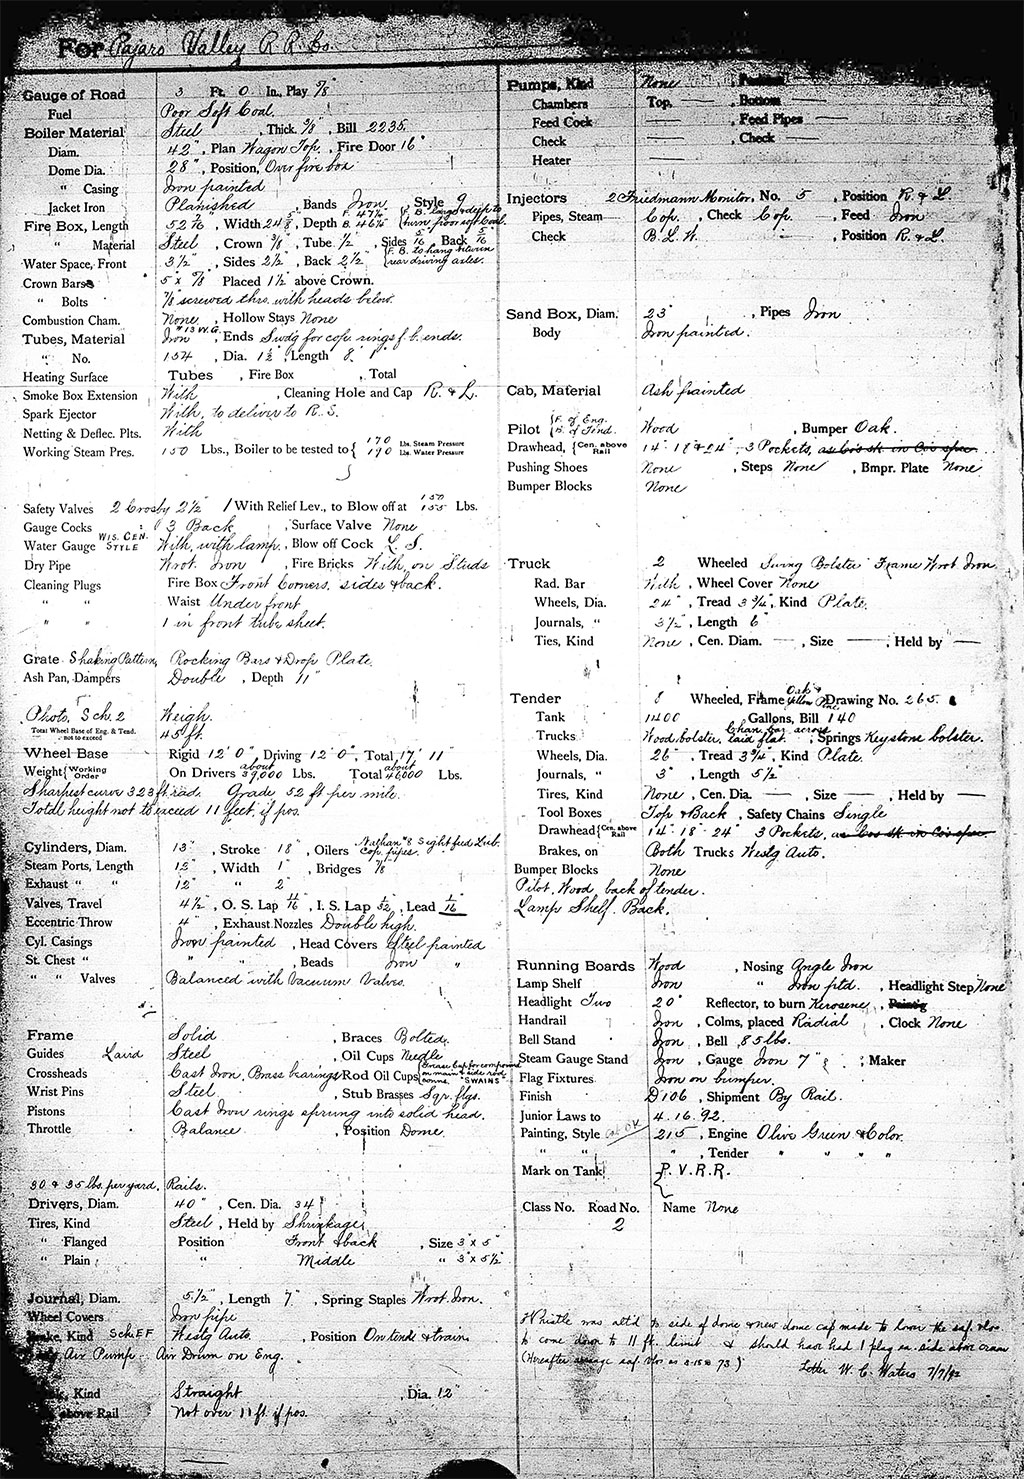 For Pajaro Valley R R Co.
Gauge of Road 3 Ft. 0 In., Play 5/8"
Fuel Poor Soft Coal.
Boiler Material Steel , Thick. 5/8" , Bill 2235.
Diam. 42" , Plan Wagon Top. , Fire Door 16"
Dome Dia. 28" , Position, Over fire box
" Casing Iron painted
Jacket Iron Planished , Bands Iron , Style 9
Fire Box, Length 52 7/16 , Width 24 5/8" , Depth F. 47 1/4 B. 46 1/4 { F. B. large & deep to burn poor soft coal.
" Material Steel , Crown 3/8 , Tube 1/2 , Sides 5/16 , Back 5/16
Water Space, Front 3 1/2" , Sides 2 1/2" , Back 2 1/2" { F. B. to hang between rear driving axles.
Crown Bars 5" x 5/8" Placed 1 1/2 above Crown.
" Bolts 7/8" screwed thro. with heads below.
Combustion Cham. None , Hollow Stays None
Tubes, Material Iron #13 W.G. , Ends Swdg for cop. rings f. b. ends.
" No. 154 , Dia. 1 1/2" , Length 8' 1"
Heating Surface Tubes , Fire Box , Total
Smoke Box Extension With , Cleaning Hole and Cap R. & L.
Spark Ejector With, to deliver to R. S.
Netting & Deflec. Plts. With
Working Steam Pres. 150 Lbs., Boiler to be tested to { 170 Lbs. Steam Pressure 190 Lbs. Water Pressure
Safety Valves 2 Crosby 2 1/2" 1 With Relief Lev., to Blow off at 150 155 Lbs.
Gauge Cocks 3 Back , Surface Valve None
Water Gauge WIS. CEN. STYLE With, with lamp. , Blow off Cock L S.
Dry Pipe Wrot. Iron , Fire Bricks With, on Studs
Cleaning Plugs Fire Box Front Corners, sides & back.
" " Waist Under front
" " 1 in front tube sheet.
Grate Shaking Pattern, Rocking Bars & Drop Plate.
Ash Pan, Dampers Double , Depth 11"
Photo, Sch. 2 Weigh.
Total Wheel Base of Eng. & Tend. not to exceed 45 ft.
Wheel Base Rigid 12' 0" , Driving 12' 0" , Total 17' 11"
Weight { Working Order On Drivers about 39,000 Lbs. Total about 46,000 Lbs.
Sharpest curve 323 ft. rad. Grade 52 ft per mile.
Total height not to exceed 11 feet, if pos.
Cylinders, Diam. 13" , Stroke 18" , Oilers Nathan #8 Sightfeed Lub. cop. pipes.
Steam Ports, Length 12" , Width 1" , Bridges 7/8
Exhaust " " 12" " 2"
Valves, Travel 4 1/2" , O. S. Lap 11/16 , I. S. Lap 1/32 , Lead 1/16
Eccentric Throw 4" , Exhaust Nozzles Double high.
Cyl. Casings Iron painted , Head Covers Steel painted
St. Chest " " " , Beads Iron "
" " Valves Balanced with Vacuum Valves.
Frame Solid , Braces Bolted.
Guides Laird Steel , Oil Cups Needle
Crossheads Cast Iron, Brass bearings Rod Oil Cups { Grease Cup for compound on main & side rod conns. "SWAINS"
Wrist Pins Steel , Stub Brasses Sqr. flgs.
Pistons Cast Iron rings sprung into solid head.
Throttle Balance , Position Dome.
30 & 35 lbs. per yard, Rails.
Drivers, Diam. 40" , Cen. Dia. 34
Tires, Kind Steel , Held by Shrinkage
" Flanged Position Front & back , Size 3" x 5"
" Plain " Middle " 3" x 5 1/2"
Journal, Diam. 5 1/2" , Length 7" , Spring Staples Wrot. Iron.
Wheel Covers Iron pipe
Brake, Kind Sch EF Westg Auto. , Position On tend. & train.
Air Pump. Air Drum on Eng.
Kind Straight , Dia. 12"
above Rail Not over 11 ft. if pos.
Pumps, Kind None Position
Chambers Top. — , Bottom —
Feed Cock — , Feed Pipes —
Check — , Check —
Heater —
Injectors 2 Friedmann Monitor, No. 5 , Position R. & L.
Pipes, Steam Cop. , Check Cop. , Feed Iron
Check B. L. W. , Position R. & L.
Sand Box, Diam. 23" , Pipes Iron
Body Iron painted.
Cab, Material Ash painted
Pilot { F. of Eng. B. of Tend. Wood , Bumper Oak.
Drawhead, { Cen. above Rail 14" 18" & 24" , 3 Pockets,
Pushing Shoes None , Steps None , Bmpr. Plate None
Bumper Blocks None
Truck 2 Wheeled Swing Bolster Frame Wrot Iron.
Rad. Bar With , Wheel Cover None
Wheels, Dia. 24" , Tread 3 3/4" , Kind Plate.
Journals, " 3 1/2" , Length 6"
Ties, Kind None , Cen. Diam. — , Size — , Held by —
Tender 8 Wheeled, Frame Oak & Yellow Pine. Drawing No. 265
Tank 1400 Gallons, Bill 140
Trucks Wood bolster, Chan. bar across, laid flat , Springs Keystone bolster.
Wheels, Dia. 26" , Tread 3 3/4" , Kind Plate.
Journals, " 3" , Length 5 1/2"
Tires, Kind None , Cen. Dia. — , Size — , Held by —
Tool Boxes Top & Back , Safety Chains Single
Drawhead { Cen. above Rail 14" 18" 24" 3 Pockets,
Brakes, on Both Trucks Westg Auto.
Bumper Blocks None
Pilot, Wood, back of tender.
Lamp Shelf. Back.
Running Boards Wood , Nosing Angle Iron
Lamp Shelf Iron " Iron ptd. , Headlight Step None
Headlight Two 20" Reflector, to burn Kerosene ,
Handrail Iron , Colms, placed Radial , Clock None
Bell Stand Iron , Bell 85 lbs.
Steam Gauge Stand Iron , Gauge Iron 7" , Maker
Flag Fixtures Iron on bumper.
Finish D106 , Shipment By Rail.
Junior Laws to 4. 16. 92.
Painting, Style Cat OK 215 , Engine Olive Green & Color.
" " " , Tender " " " "
Mark on Tank P. V. R. R.
Class No. Road No. 2 Name None
Whistle was alt'd to side of dome & new dome cap made to lower the saf. vlvs
to come down to 11 ft. limit & should have had 1 plug ea. side above crown
Letter W. C. Waters 7/7/92